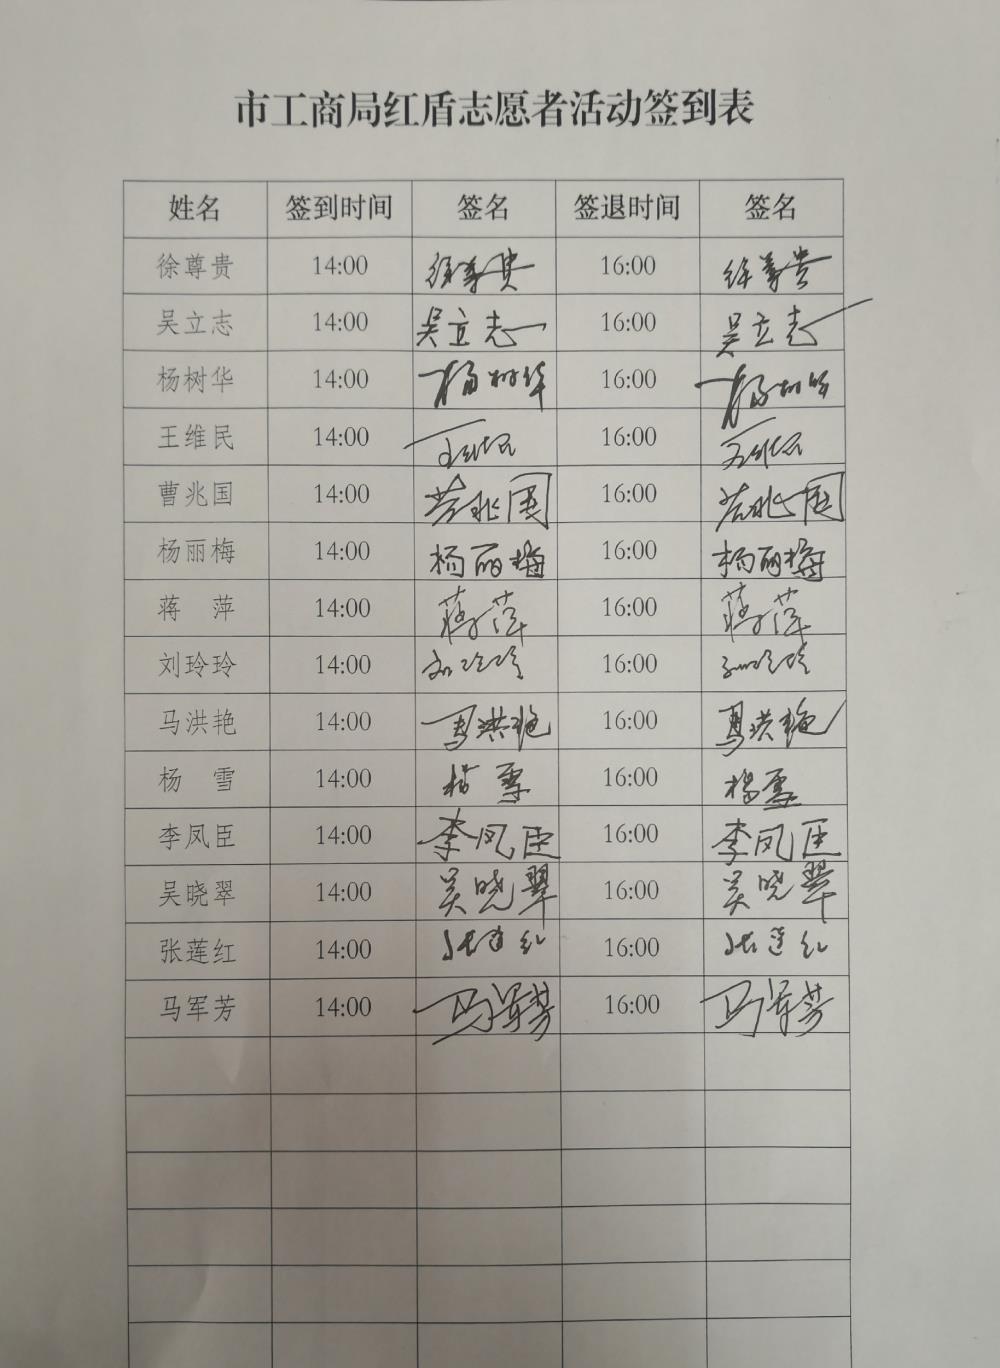 市工商局红盾志愿者活动签到表
姓名 签到时间 签名 签退时间 签名
徐尊贵 14:00 徐尊贵 16:00 徐尊贵
吴立志 14:00 吴立志 16:00 吴立志
杨树华 14:00 杨树华 16:00 杨树华
王维民 14:00 王维民 16:00 王维民
曹兆国 14:00 曹兆国 16:00 曹兆国
杨丽梅 14:00 杨丽梅 16:00 杨丽梅
蒋 萍 14:00 蒋萍 16:00 蒋萍
刘玲玲 14:00 刘玲玲 16:00 刘玲玲
马洪艳 14:00 马洪艳 16:00 马洪艳
杨 雪 14:00 杨雪 16:00 杨雪
李凤臣 14:00 李凤臣 16:00 李凤臣
吴晓翠 14:00 吴晓翠 16:00 吴晓翠
张莲红 14:00 张莲红 16:00 张莲红
马军芳 14:00 马军芳 16:00 马军芳